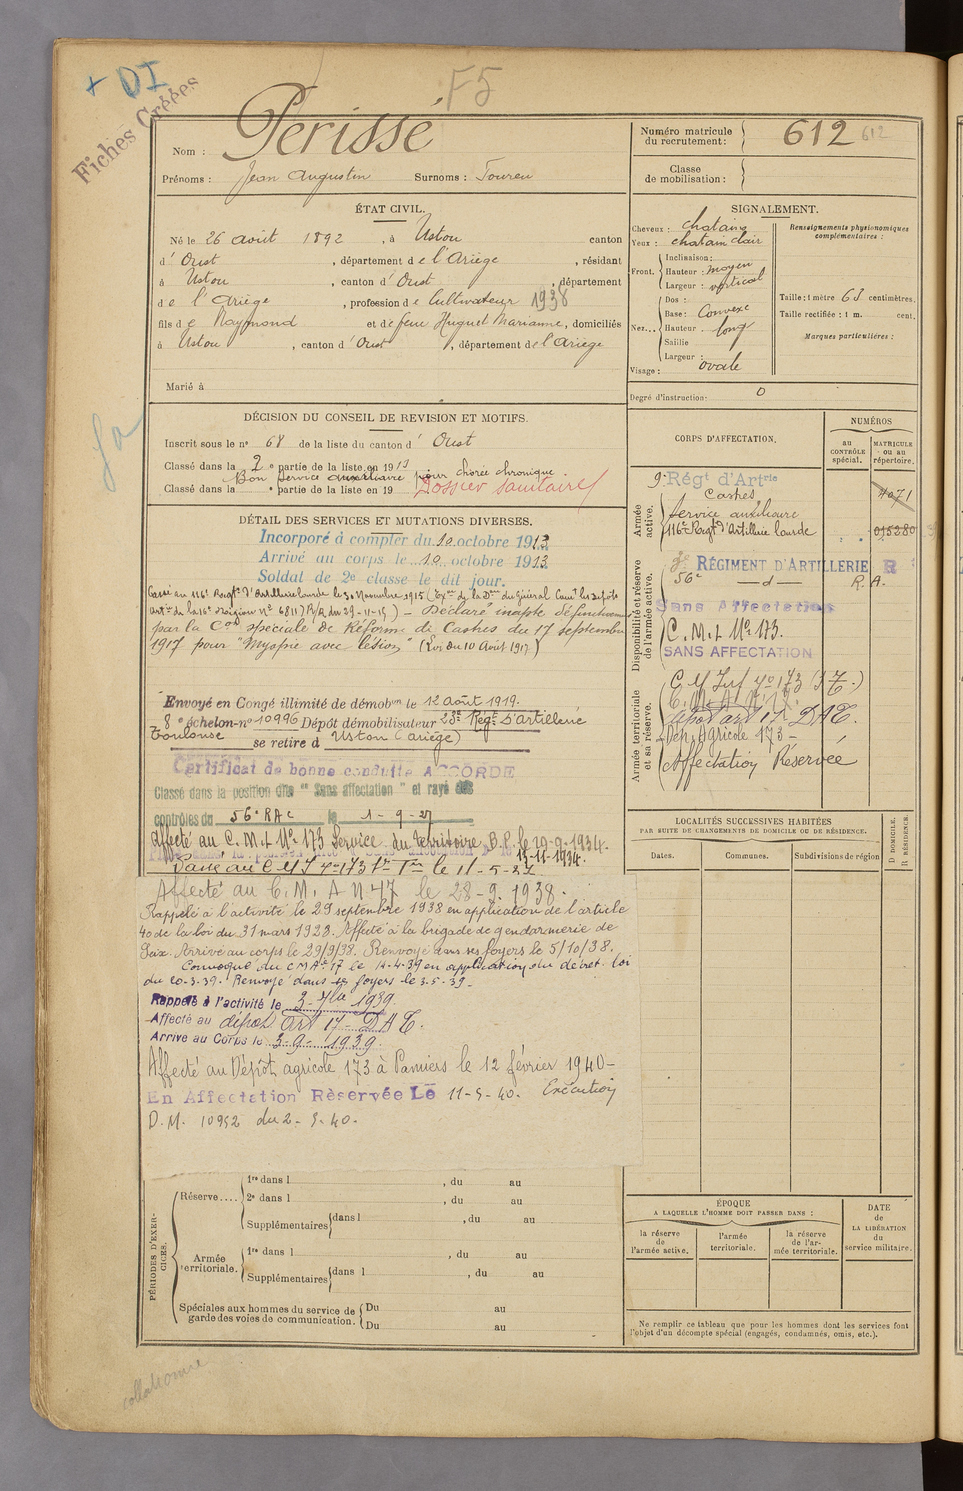 + DI
F5
Fiches Créées
Nom : Périssé
Prénoms : Jean Augustin Surnoms : Toureu
Numéro matricule du recrutement : 612 612
Classe de mobilisation :
ÉTAT CIVIL.
Né le 26 août 1892, à Ustou canton
d' Oust, département de l'Ariège, résidant
à Ustou, canton d' Oust, département
de l'Ariège, profession de Cultivateur 1938
fils de Raymond et de feue Huguet Marianne, domiciliés
à Ustou, canton d' Oust, département de l'Ariège
Marié à
SIGNALEMENT.
Cheveux : chatains
Yeux : chatain clair
Front. Inclinaison :
Hauteur : moyen
Largeur : vertical
Nez... Dos :
Base : Convexe
Hauteur : long
Saillie
Largeur :
Visage : ovale
Renseignements physionomiques complémentaires :
Taille : 1 mètre 63 centimètres.
Taille rectifiée : 1 m. cent.
Marques particulières :
Degré d'instruction : 0
DÉCISION DU CONSEIL DE REVISION ET MOTIFS.
Inscrit sous le n° 68 de la liste du canton d' Oust
Classé dans la 2e partie de la liste en 1913
Bon service auxiliaire pour chorée chronique.
Classé dans la e partie de la liste en 19
Dossier sanitaire
DÉTAIL DES SERVICES ET MUTATIONS DIVERSES.
Incorporé à compter du 10 octobre 1913
Arrivé au corps le 10 octobre 1913
Soldat de 2e classe le dit jour.
Passé au 116e Regt d'Artillerie lourde le 30 Novembre 1915 (Exon de la Don du Général Comt les Dépôts
Artie de la 16e Région N° 6811) P/A du 29-11-15) - Déclaré inapte définitivement
par la Con spéciale de Réforme de Castres du 17 septembre
1917 pour "Myopie avec lésion" (Loi du 10 Août 1917)
Envoyé en Congé illimité de démobon le 12 août 1919.
8e échelon n° 10996 Dépôt démobilisateur 23e Regt d'artillerie
Toulouse se retire à Ustou (Ariège)
Certificat de bonne conduite ACCORDÉ
Classé dans la position dite "Sans affectation" et rayé des
contrôles du 56e RAC le 1-9-27
Affecté au C.M.I N° 173 Service du Territoire B.P. le 29-9-1934.
13-11-1934.
Passé au C M I n° 173 le 11-5-37
Affecté au C. M. A N 47 le 28-9-1938.
Rappelé à l'activité le 29 septembre 1938 en application de l'article
40 de la loi du 31 mars 1928. Affecté à la brigade de gendarmerie de
Seix. Arrivé au corps le 29/9/38. Renvoyé dans ses foyers le 5/10/38.
Convoqué au C M A° 17 le 14-4-39 en application du décret loi
du 20-3-39. Renvoyé dans ses foyers le 3.5.39.
Rappelé à l'activité le 3-7bre 1939.
Affecté au dépôt art 17 - DAT.
Arrivé au Corps le 3-9-1939.
Affecté au Dépôt agricole 173 à Pamiers le 12 février 1940-
En Affectation Réservée Le 11-5-40. Exécution
D.M. 10952 du 2-5-40.
CORPS D'AFFECTATION.
NUMÉROS
au CONTRÔLE spécial.
MATRICULE ou au répertoire.
Armée active.
9e Régt d'Artrie
Castres 4071
Service auxiliaire
116e Regt d'Artillerie lourde 015280
Disponibilité et réserve de l'armée active.
RÉGIMENT D'ARTILLERIE R
56e d R.A.
Sans Affectation
C.M.I N° 173.
SANS AFFECTATION
Armée territoriale et sa réserve.
C.M. Inf n° 173 (S.T.)
dépôt art 17- DAT.
Dép. Agricole 173-
Affectation Réservée
LOCALITÉS SUCCESSIVES HABITÉES
PAR SUITE DE CHANGEMENTS DE DOMICILE OU DE RÉSIDENCE.
Dates. Communes. Subdivisions de région
D DOMICILE. R RÉSIDENCE.
PÉRIODES D'EXERCICES.
Réserve.... 1re dans l , du au
2e dans l , du au
Supplémentaires dans l , du au
Armée territoriale. 1re dans l , du au
Supplémentaires dans l , du au
Spéciales aux hommes du service de garde des voies de communication. Du au
Du au
ÉPOQUE
A LAQUELLE L'HOMME DOIT PASSER DANS :
la réserve de l'armée active.
l'armée territoriale.
la réserve de l'armée territoriale.
DATE de LA LIBÉRATION du service militaire.
Ne remplir ce tableau que pour les hommes dont les services font
l'objet d'un décompte spécial (engagés, condamnés, omis, etc.).
collationné